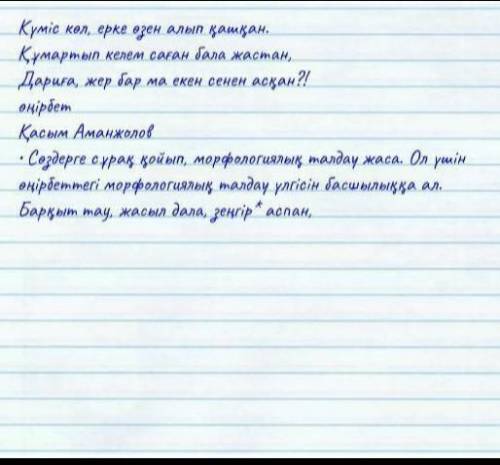 Күміс көл, ерке өзен алып қашқан.
Құмартып келем саған бала жастан,
Дариға, жер бар ма екен сенен асқан?!
өңірбет
Қасым Аманжолов
• Сөздерге сұрақ қойып, морфологиялық талдау жаса. Ол үшін
өңірбеттегі морфологиялық талдау үлгісін басшылыққа ал.
Барқыт тау, жасыл дала, зеңгір* аспан,